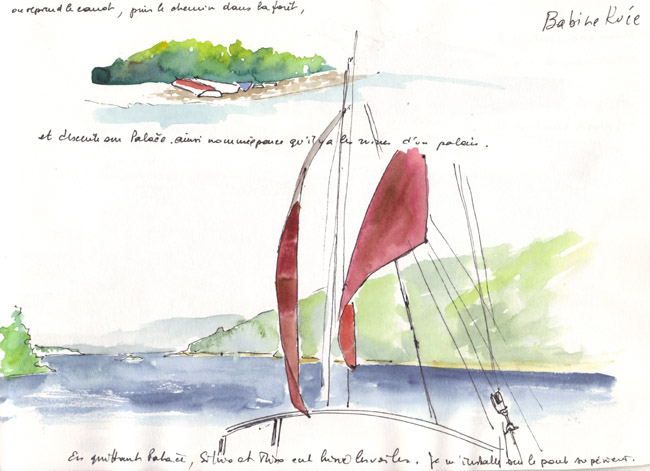 on reprend le canot, puis le chemin dans la forêt,
Babine Kuće
et descente sur Palače. ainsi nommée parce qu'il y a les ruines d'un palais.
En quittant Palače, Silvio et ont hissé les voiles. Je m'installe sur le pont supérieur.